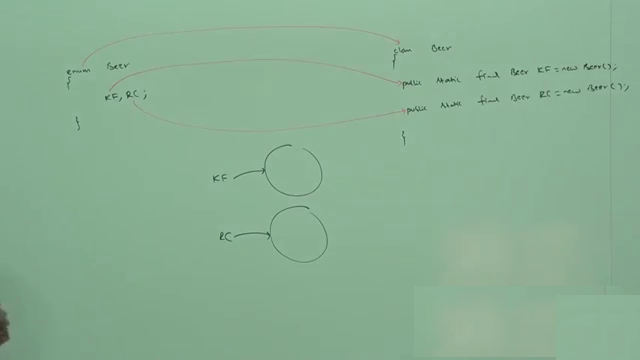 enum Beer
{
KF, RC;
}
class Beer
{
public static final Beer KF = new Beer();
public static final Beer RC = new Beer();
}
KF
RC